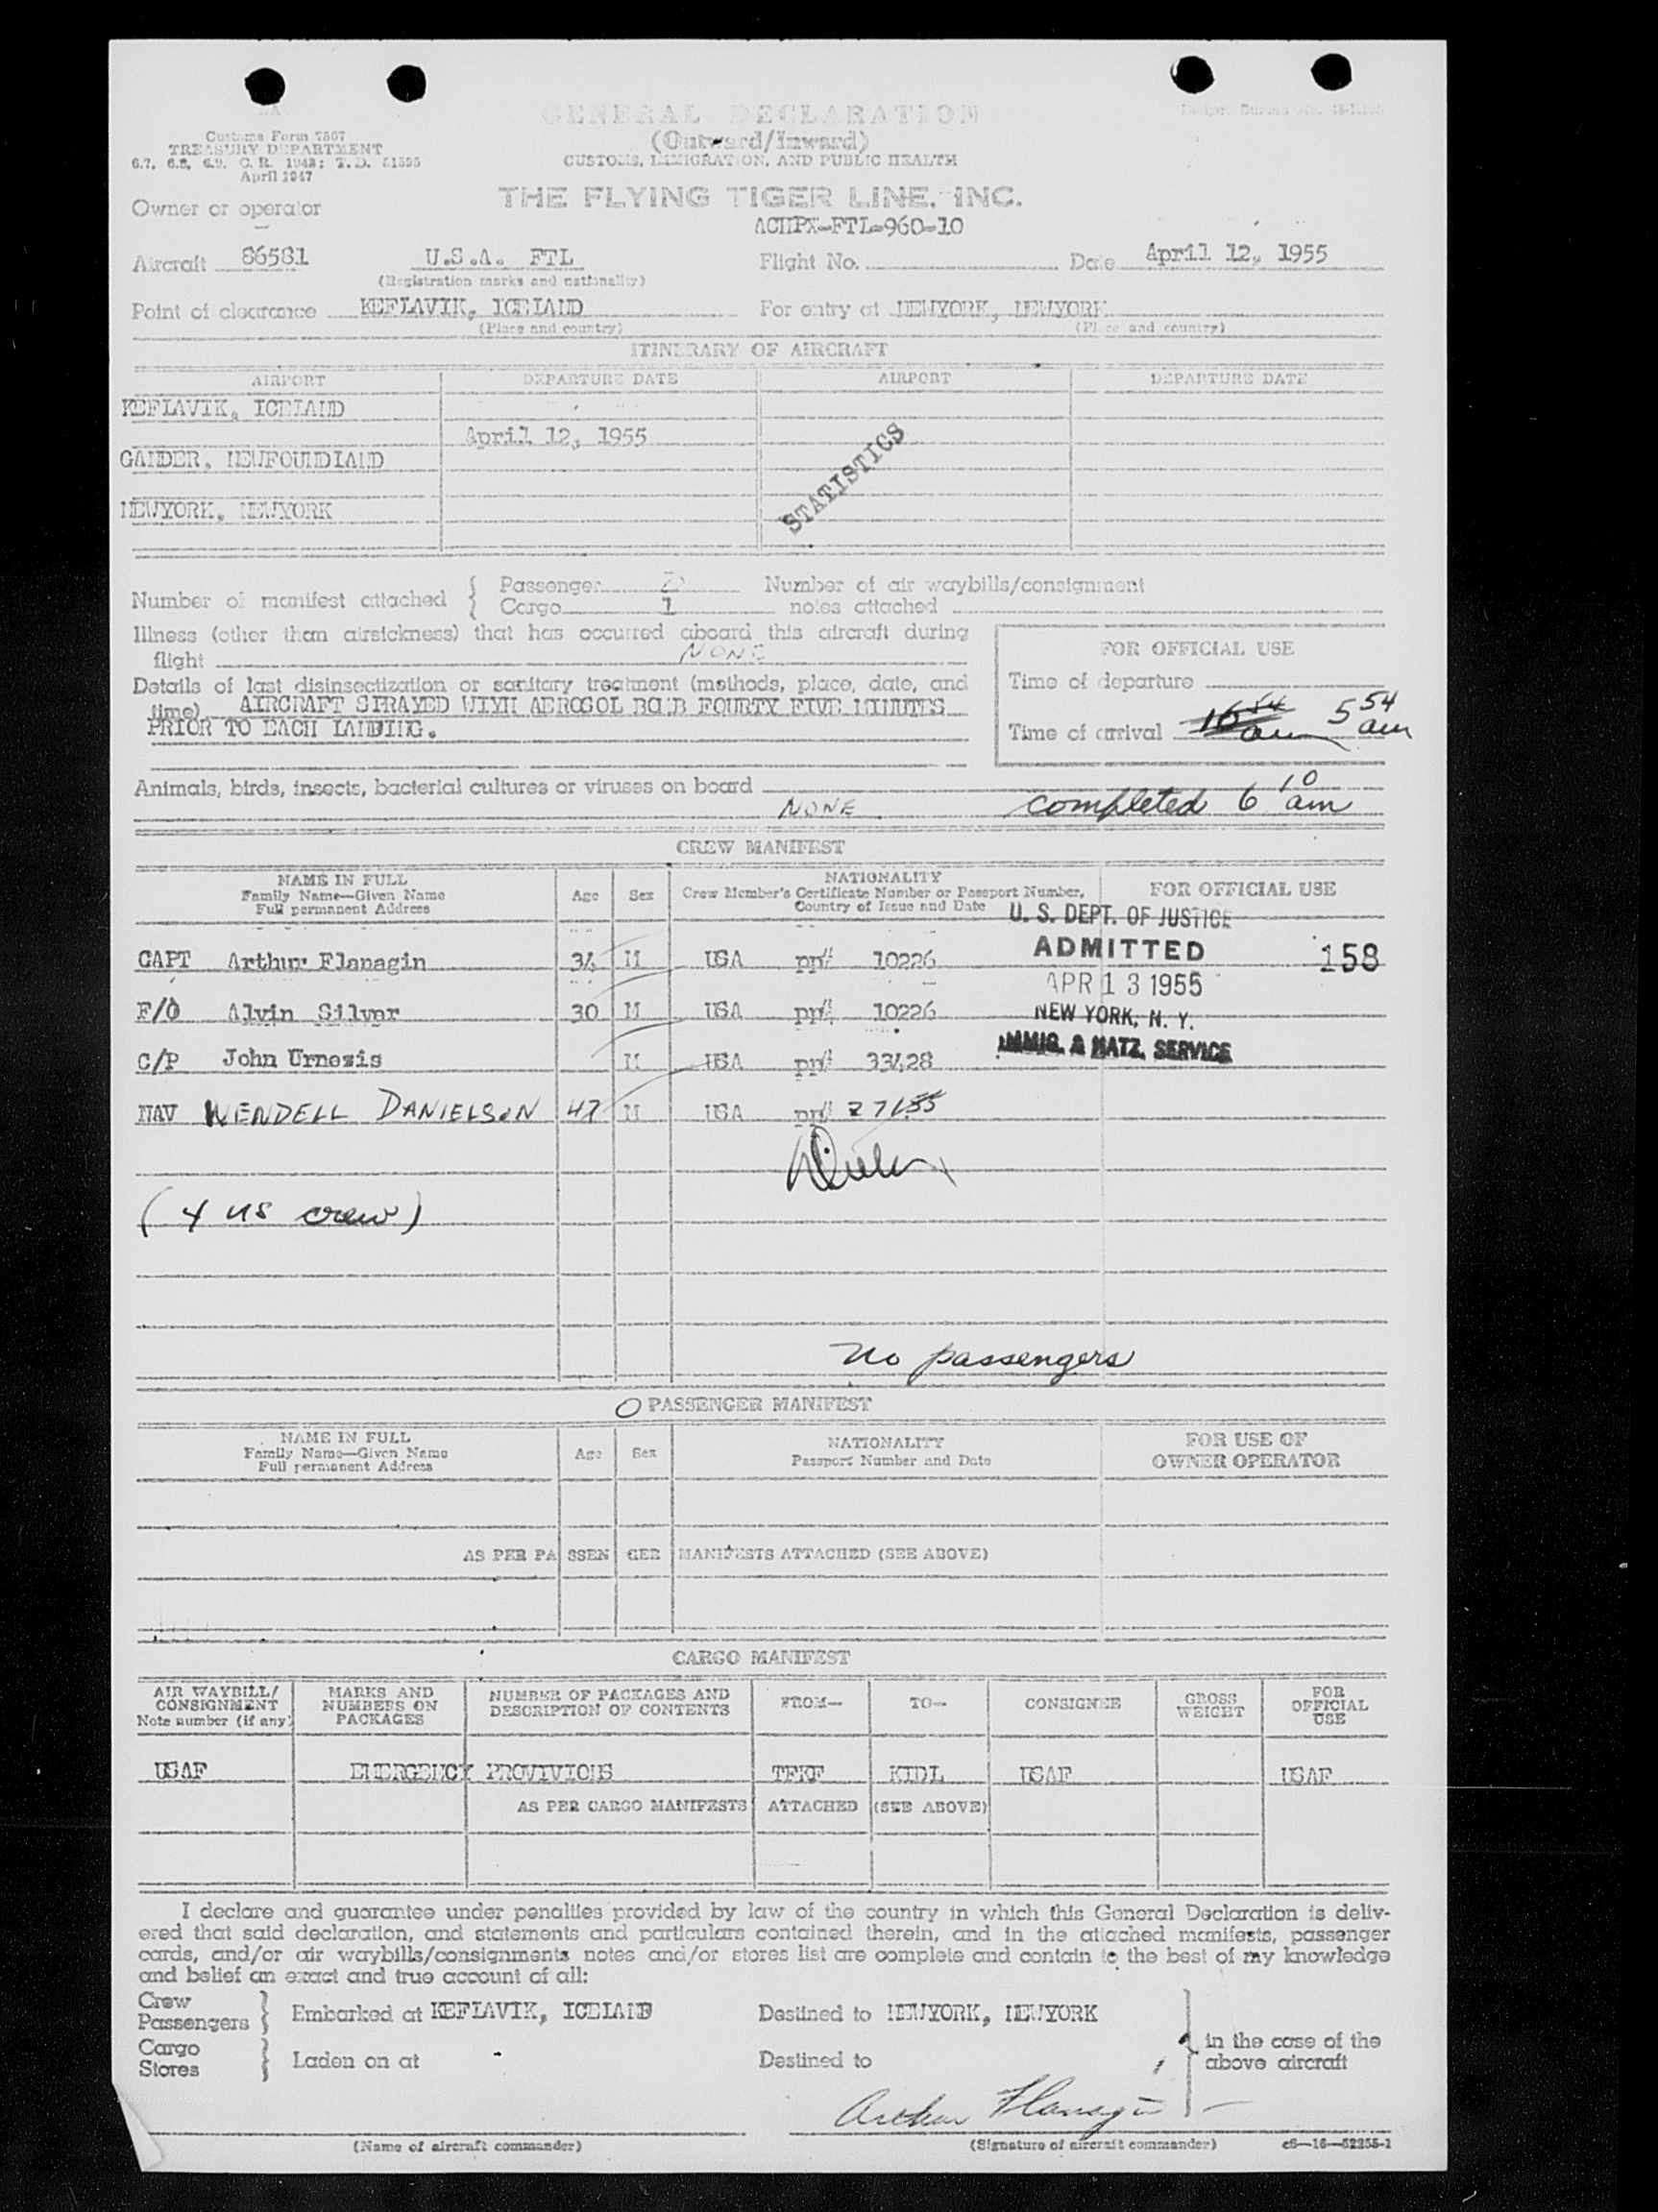 GENERAL DECLARATION
(Outward/Inward)
CUSTOMS, IMMIGRATION, AND PUBLIC HEALTH
Customs Form 7507
TREASURY DEPARTMENT
6.7, 6.8, 6.9, C. R. 1943; T. D. 51595
April 1947
THE FLYING TIGER LINE, INC.
Owner or operator
ACHPX-FTL-960-10
Aircraft 86581 U.S.A. FTL Flight No. Date April 12, 1955
(Registration marks and nationality)
Point of clearance KEFLAVIK, ICELAND For entry at NEWYORK, NEWYORK
(Place and country) (Place and country)
ITINERARY OF AIRCRAFT
AIRPORT DEPARTURE DATE AIRPORT DEPARTURE DATE
KEFLAVIK, ICELAND
April 12, 1955
GANDER, NEWFOUNDLAND
STATISTICS
NEWYORK, NEWYORK
Number of manifest attached { Passenger Number of air waybills/consignment
Cargo 1 notes attached
Illness (other than airsickness) that has occurred aboard this aircraft during
flight NONE
FOR OFFICIAL USE
Details of last disinsectization or sanitary treatment (methods, place, date, and
time) AIRCRAFT SPRAYED WIYH AEROSOL BOMB FOURTY FIVE MINUTES
PRIOR TO EACH LANDING.
Time of departure
Time of arrival 5 54 am
Animals, birds, insects, bacterial cultures or viruses on board
NONE completed 6 10 am
CREW MANIFEST
NAME IN FULL
Family Name—Given Name
Full permanent Address
Age Sex
NATIONALITY
Crew Member's Certificate Number or Passport Number,
Country of Issue and Date
FOR OFFICIAL USE
U. S. DEPT. OF JUSTICE
ADMITTED 158
APR 13 1955
NEW YORK, N. Y.
IMMIG. & NATZ. SERVICE
CAPT Arthur Flanagin 34 M USA pp# 10226
F/O Alvin Silver 30 M USA pp# 10226
C/P John Urnezis M USA pp# 33428
NAV WENDELL DANIELSON 47 M USA pp#
(4 US crew)
No passengers
O PASSENGER MANIFEST
NAME IN FULL
Family Name—Given Name
Full permanent Address
Age Sex
NATIONALITY
Passport Number and Date
FOR USE OF
OWNER OPERATOR
AS PER PASSENGER MANIFESTS ATTACHED (SEE ABOVE)
CARGO MANIFEST
AIR WAYBILL/
CONSIGNMENT
Note number (if any)
MARKS AND
NUMBERS ON
PACKAGES
NUMBER OF PACKAGES AND
DESCRIPTION OF CONTENTS
FROM— TO— CONSIGNEE
GROSS
WEIGHT
FOR
OFFICIAL
USE
USAF EMERGENCY PROVIVIONS TFKF KIDL USAF USAF
AS PER CARGO MANIFESTS ATTACHED (SEE ABOVE)
I declare and guarantee under penalties provided by law of the country in which this General Declaration is deliv-
ered that said declaration, and statements and particulars contained therein, and in the attached manifests, passenger
cards, and/or air waybills/consignments notes and/or stores list are complete and contain to the best of my knowledge
and belief an exact and true account of all:
Crew
Passengers } Embarked at KEFLAVIK, ICELAND Destined to NEWYORK, NEWYORK
Cargo
Stores } Laden on at Destined to
in the case of the
above aircraft
Arthur Flanagin
(Name of aircraft commander) (Signature of aircraft commander) c6—16—52255-1